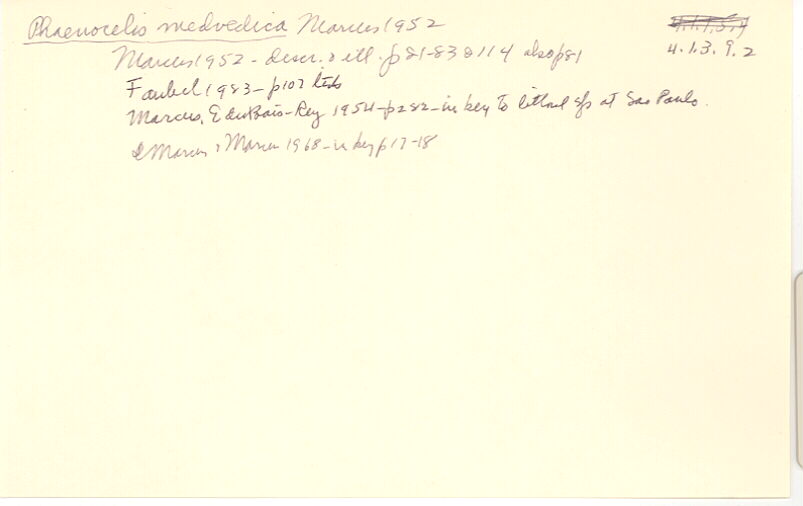 Phaenocelis medvedica Marcus 1952
4.1.3.9.2
Marcus 1952 - descr. & ill. p81-83 & 114 also p81
Faubel 1983 - p107 lists
Marcus, E du Bois-Rey 1954 - p282 - in key to littoral sps at Sao Paulo.
E Marcus & Marcus 1968 - in key p17-18